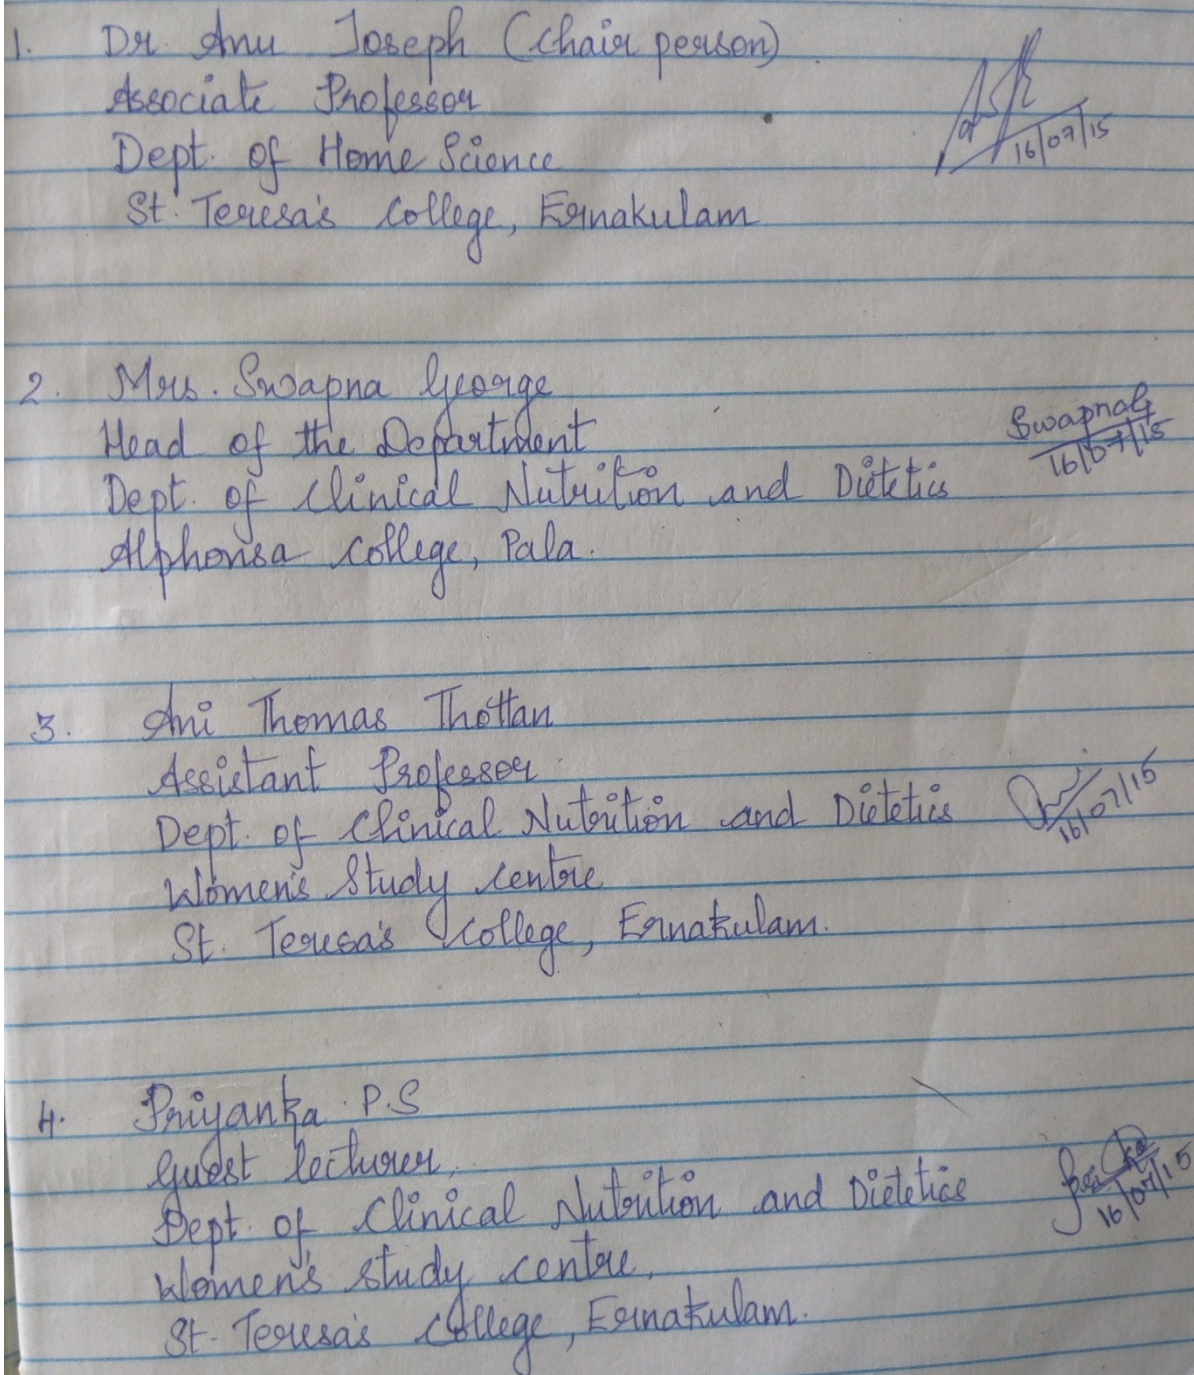 1. Dr. Anu Joseph (Chair person)
Associate Professor
16/07/15
Dept. of Home Science
St. Teresa's College, Ernakulam
2. Mrs. Swapna George
Head of the Department
SwapnaG
16/07/15
Dept. of Clinical Nutrition and Dietetics
Alphonsa College, Pala.
3. Ani Thomas Thottan
Assistant Professor
Dept. of Clinical Nutrition and Dietetics
16/07/15
Women's Study Centre
St. Teresa's College, Ernakulam.
4. Priyanka P.S
Guest lecturer,
Dept. of Clinical Nutrition and Dietetics
16/07/15
Women's study centre,
St. Teresa's College, Ernakulam.